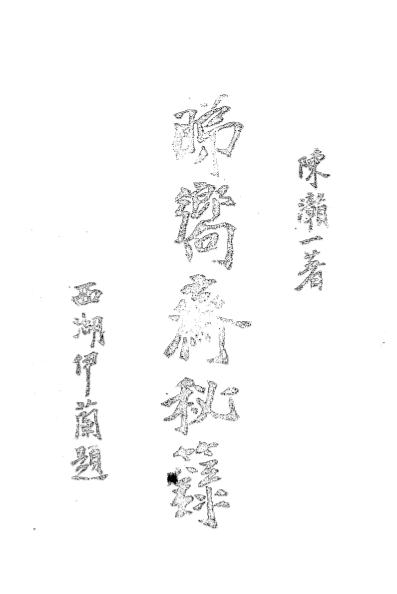 陳灨一著
睇嚮齋秘錄
西湖伊蘭題